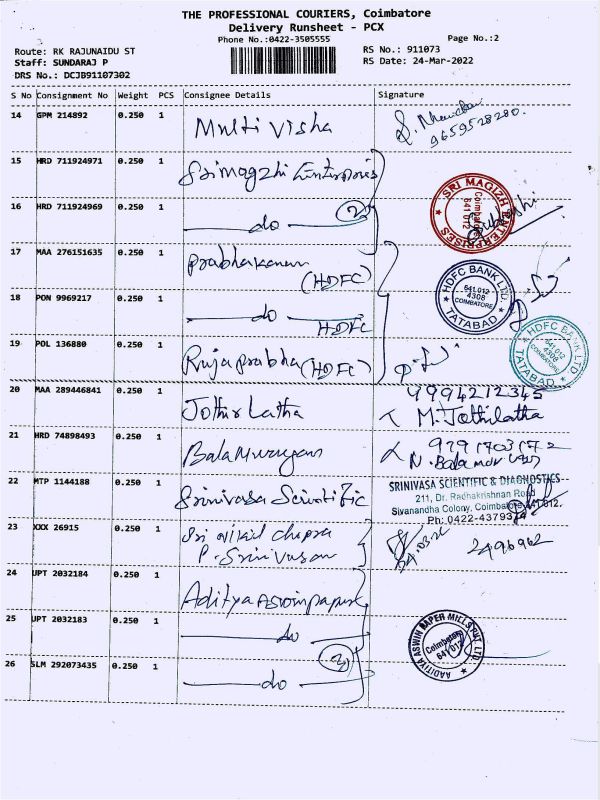 THE PROFESSIONAL COURIERS, Coimbatore
Delivery Runsheet - PCX
Phone No.:0422-3505555
Page No.:2
Route: RK RAJUNAIDU ST
RS No.: 911073
Staff: SUNDARAJ P
RS Date: 24-Mar-2022
DRS No.: DCJB91107302
S No Consignment No Weight PCS Consignee Details Signature
14 GPM 214892 0.250 1 Multi Visha
9659528280.
15 HRD 711924971 0.250 1 Srimagzhi Enterprises
16 HRD 711924969 0.250 1 do 2
SRI MAGIZH ENTERPRISES
Coimbatore
641 012
17 MAA 276151635 0.250 1 Prabhakaran
(HDFC)
HDFC BANK LTD.
641 012
4308
COIMBATORE
TATABAD
18 PON 9969217 0.250 1 do
HDFC
19 POL 136880 0.250 1 Rujaprabha (HDFC)
HDFC BANK LTD.
641 012
4308
COIMBATORE
TATABAD
20 MAA 289446841 0.250 1 Jothir Latha
9994212345
M. Jothilatha
21 HRD 74898493 0.250 1 Bala Murugan
9791703172
N. Bala
22 MTP 1144188 0.250 1 Srinivasa Scientific
SRINIVASA SCIENTIFIC & DIAGNOSTICS
211, Dr. Radhakrishnan Road
Sivanandha Colony, Coimbatore 641 012.
Ph: 0422-4379374
23 XXX 26915 0.250 1 Sri Nikil Chopra
P. Srinivasan
2496962
24 UPT 2032184 0.250 1 Aditya Aswin paper
25 UPT 2032183 0.250 1 do
AADITIYA ASWIN PAPER MILLS PVT. LTD.
Coimbatore
641 012
26 SLM 292073435 0.250 1 do 3